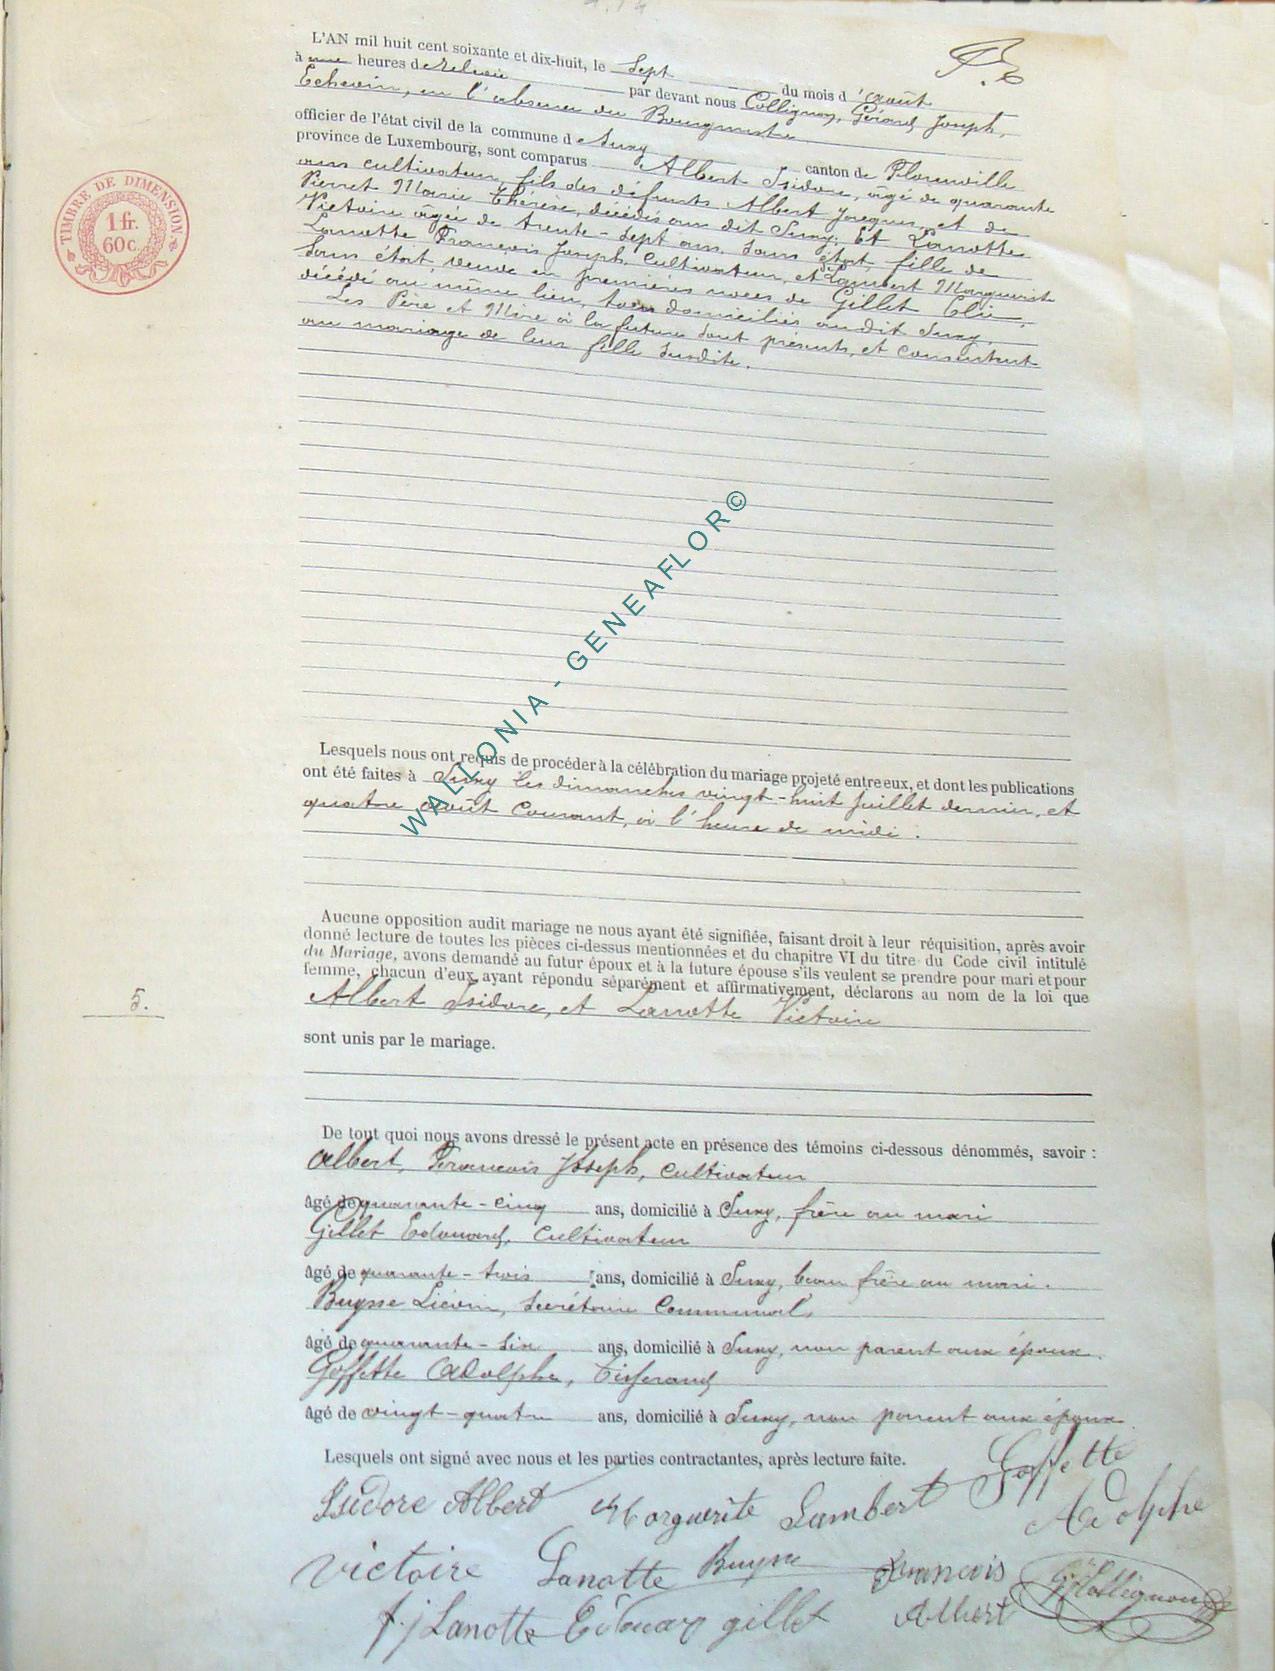 L'AN mil huit cent soixante et dix-huit, le Sept du mois d'août
à une heures de relevée par devant nous Collignon, Gérard Joseph,
Echevin, en l'absence du Bourgmestre
officier de l'état civil de la commune de Suxy canton de Florenville
province de Luxembourg, sont comparus Albert Isidore, âgé de quarante
ans cultivateur, fils des défunts Albert Jacques et de
Pierret Marie Thérèse, décédés au dit Suxy; Et Lanotte
Victoire âgée de trente-sept ans, sans état, fille de
Lanotte François Joseph, cultivateur, et de Lambert Marguerite
sans état veuve en premières noces de Gillet Elie,
décédé au même lieu, tous domiciliés audit Suxy.
Les Père et Mère à la future sont présents, et consentent
au mariage de leur fille susdite.
TIMBRE DE DIMENSION
1 fr.
60 c.
WALLONIA - GENEAFLOR©
Lesquels nous ont requis de procéder à la célébration du mariage projeté entre eux, et dont les publications
ont été faites à Suxy les dimanches vingt-huit Juillet dernier, et
quatre août courant, à l'heure de midi.
Aucune opposition audit mariage ne nous ayant été signifiée, faisant droit à leur réquisition, après avoir
donné lecture de toutes les pièces ci-dessus mentionnées et du chapitre VI du titre du Code civil intitulé
du Mariage, avons demandé au futur époux et à la future épouse s'ils veulent se prendre pour mari et pour
femme, chacun d'eux ayant répondu séparément et affirmativement, déclarons au nom de la loi que
5.
Albert Isidore, et Lanotte Victoire
sont unis par le mariage.
De tout quoi nous avons dressé le présent acte en présence des témoins ci-dessous dénommés, savoir :
Albert, François Joseph, cultivateur
âgé de quarante-cinq ans, domicilié à Suxy, frère au mari
Gillet Edouard, cultivateur
âgé de quarante-trois ans, domicilié à Suxy, beau frère au mari.
Buysse Liévin, secrétaire communal,
âgé de quarante-six ans, domicilié à Suxy, non parent aux époux.
Goffette Adolphe, Tisserand
âgé de vingt-quatre ans, domicilié à Suxy, non parent aux époux.
Lesquels ont signé avec nous et les parties contractantes, après lecture faite.
Isidore Albert Marguerite Lambert Goffette
Adolphe
Victoire Lanotte Buysse François
Albert
f.j Lanotte Edouard gillet
GJCollignon